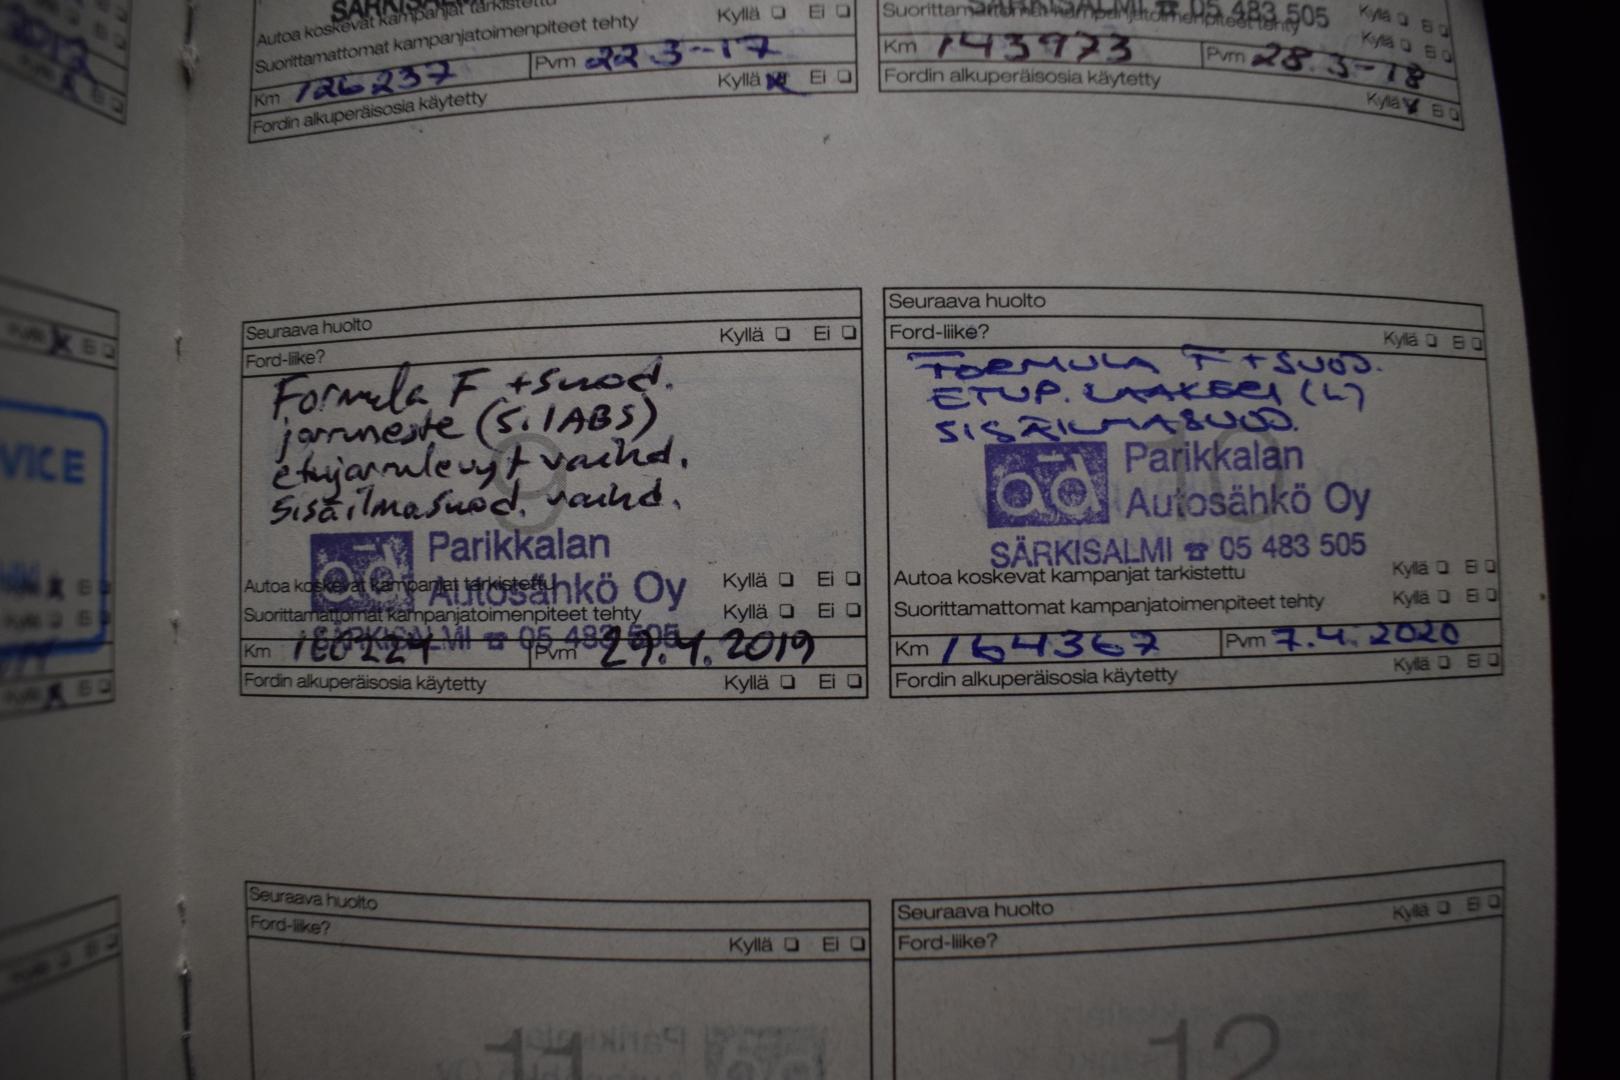 SÄRKISALMI
Autoa koskevat kampanjat tarkistettu
Suorittamattomat kampanjatoimenpiteet tehty Kyllä Ei
Km 126237 Pvm 22.3-17
Fordin alkuperäisosia käytetty Kyllä Ei
SÄRKISALMI ☎ 05 483 505
Suorittamattomat kampanjatoimenpiteet tehty Kyllä Ei
Kyllä Ei
Km 143973 Pvm 28.3-18
Fordin alkuperäisosia käytetty Kyllä Ei
VICE
Seuraava huolto
Ford-liike? Kyllä Ei
Formula F +suod.
jarruneste (5.1ABS)
etujarrulevyt vaihd.
Sisäilmasuod. vaihd.
9
ad Parikkalan
Autosähkö Oy
SÄRKISALMI ☎ 05 483 505
Autoa koskevat kampanjat tarkistettu Kyllä Ei
Suorittamattomat kampanjatoimenpiteet tehty Kyllä Ei
Km 160224 Pvm 29.4.2019
Fordin alkuperäisosia käytetty Kyllä Ei
Seuraava huolto
Ford-liike? Kyllä Ei
FORMULA F +SUOD.
ETUP. LAAKERI (L)
SISÄILMASUOD.
10
ad Parikkalan
Autosähkö Oy
SÄRKISALMI ☎ 05 483 505
Autoa koskevat kampanjat tarkistettu Kyllä Ei
Suorittamattomat kampanjatoimenpiteet tehty Kyllä Ei
Km 164367 Pvm 7.4.2020
Fordin alkuperäisosia käytetty Kyllä Ei
Seuraava huolto
Ford-liike? Kyllä Ei
11
Seuraava huolto
Ford-liike? Kyllä Ei
12